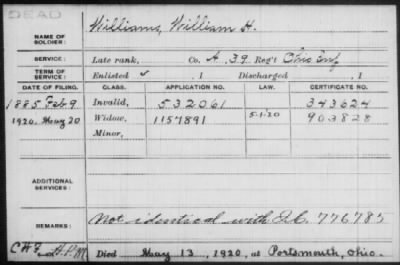 DEAD
NAME OF SOLDIER: Williams, William H.
SERVICE: Late rank, Co. A, 39 Reg't Ohio Inf
TERM OF SERVICE: Enlisted , 1 Discharged , 1
DATE OF FILING. CLASS. APPLICATION NO. LAW. CERTIFICATE NO.
1885 Feb 9 Invalid, 532061 343624
1920, May 20 Widow, 1157891 5-1-20 903828
Minor,
ADDITIONAL SERVICES:
REMARKS: Not identical with I.C. 776785
Died May 13, 1920, at Portsmouth, Ohio.